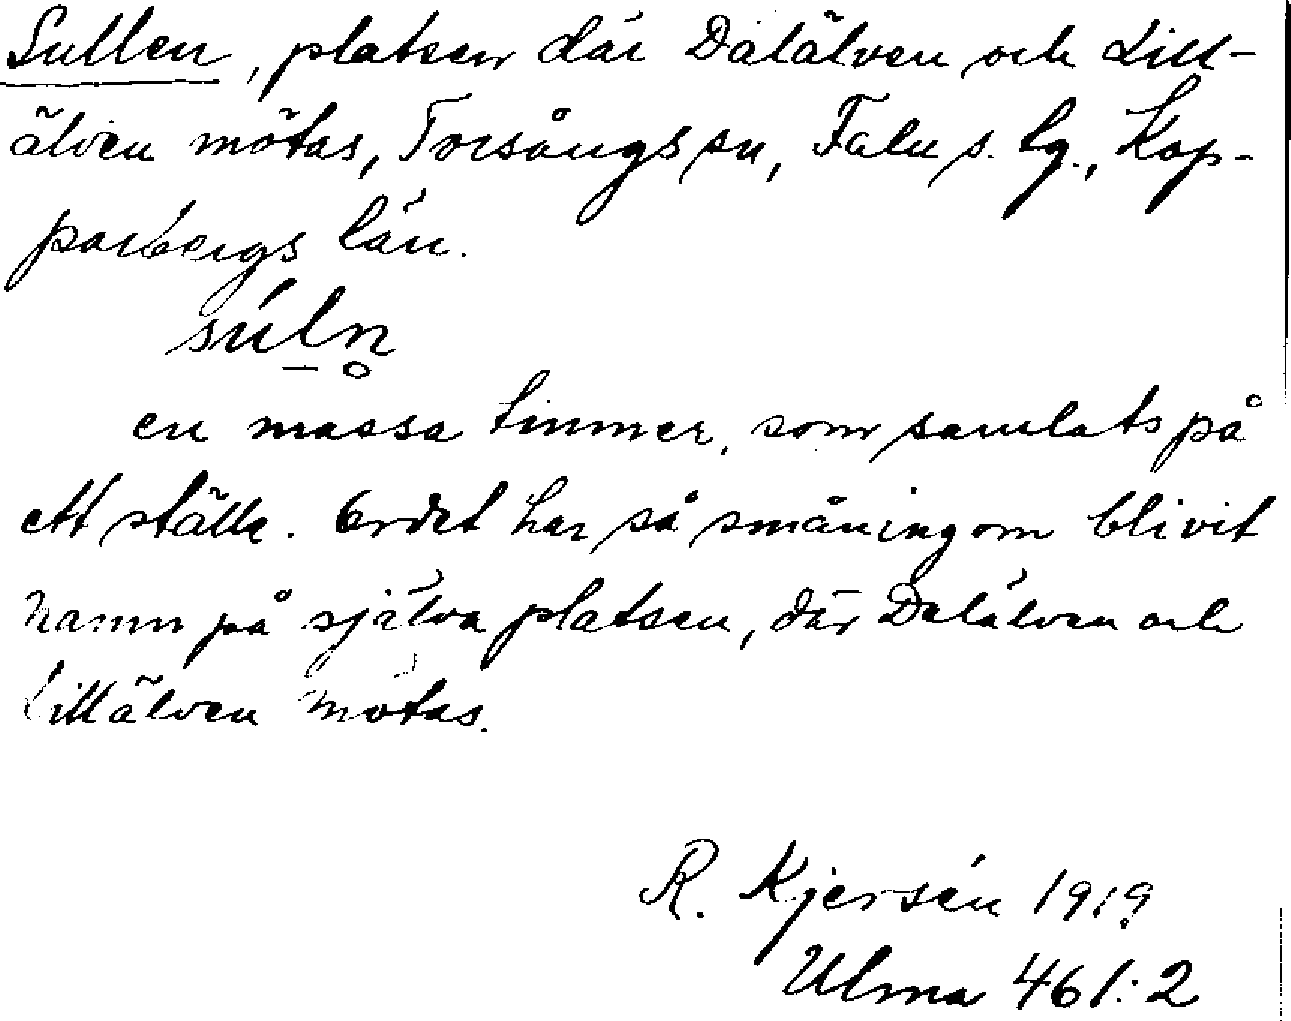 Sullen, platsen där Dalälven och Lill-
älven mötas, Torsångs sn, Falu s. lg., Kop-
parbergs län.
súl̠n̥
en massa timmer, som samlats på
ett ställe. Ordet har så småningom blivit
namn på själva platsen, där Dalälven och
Lillälven mötas.
R. Kjersén 1919
Ulma 461:2